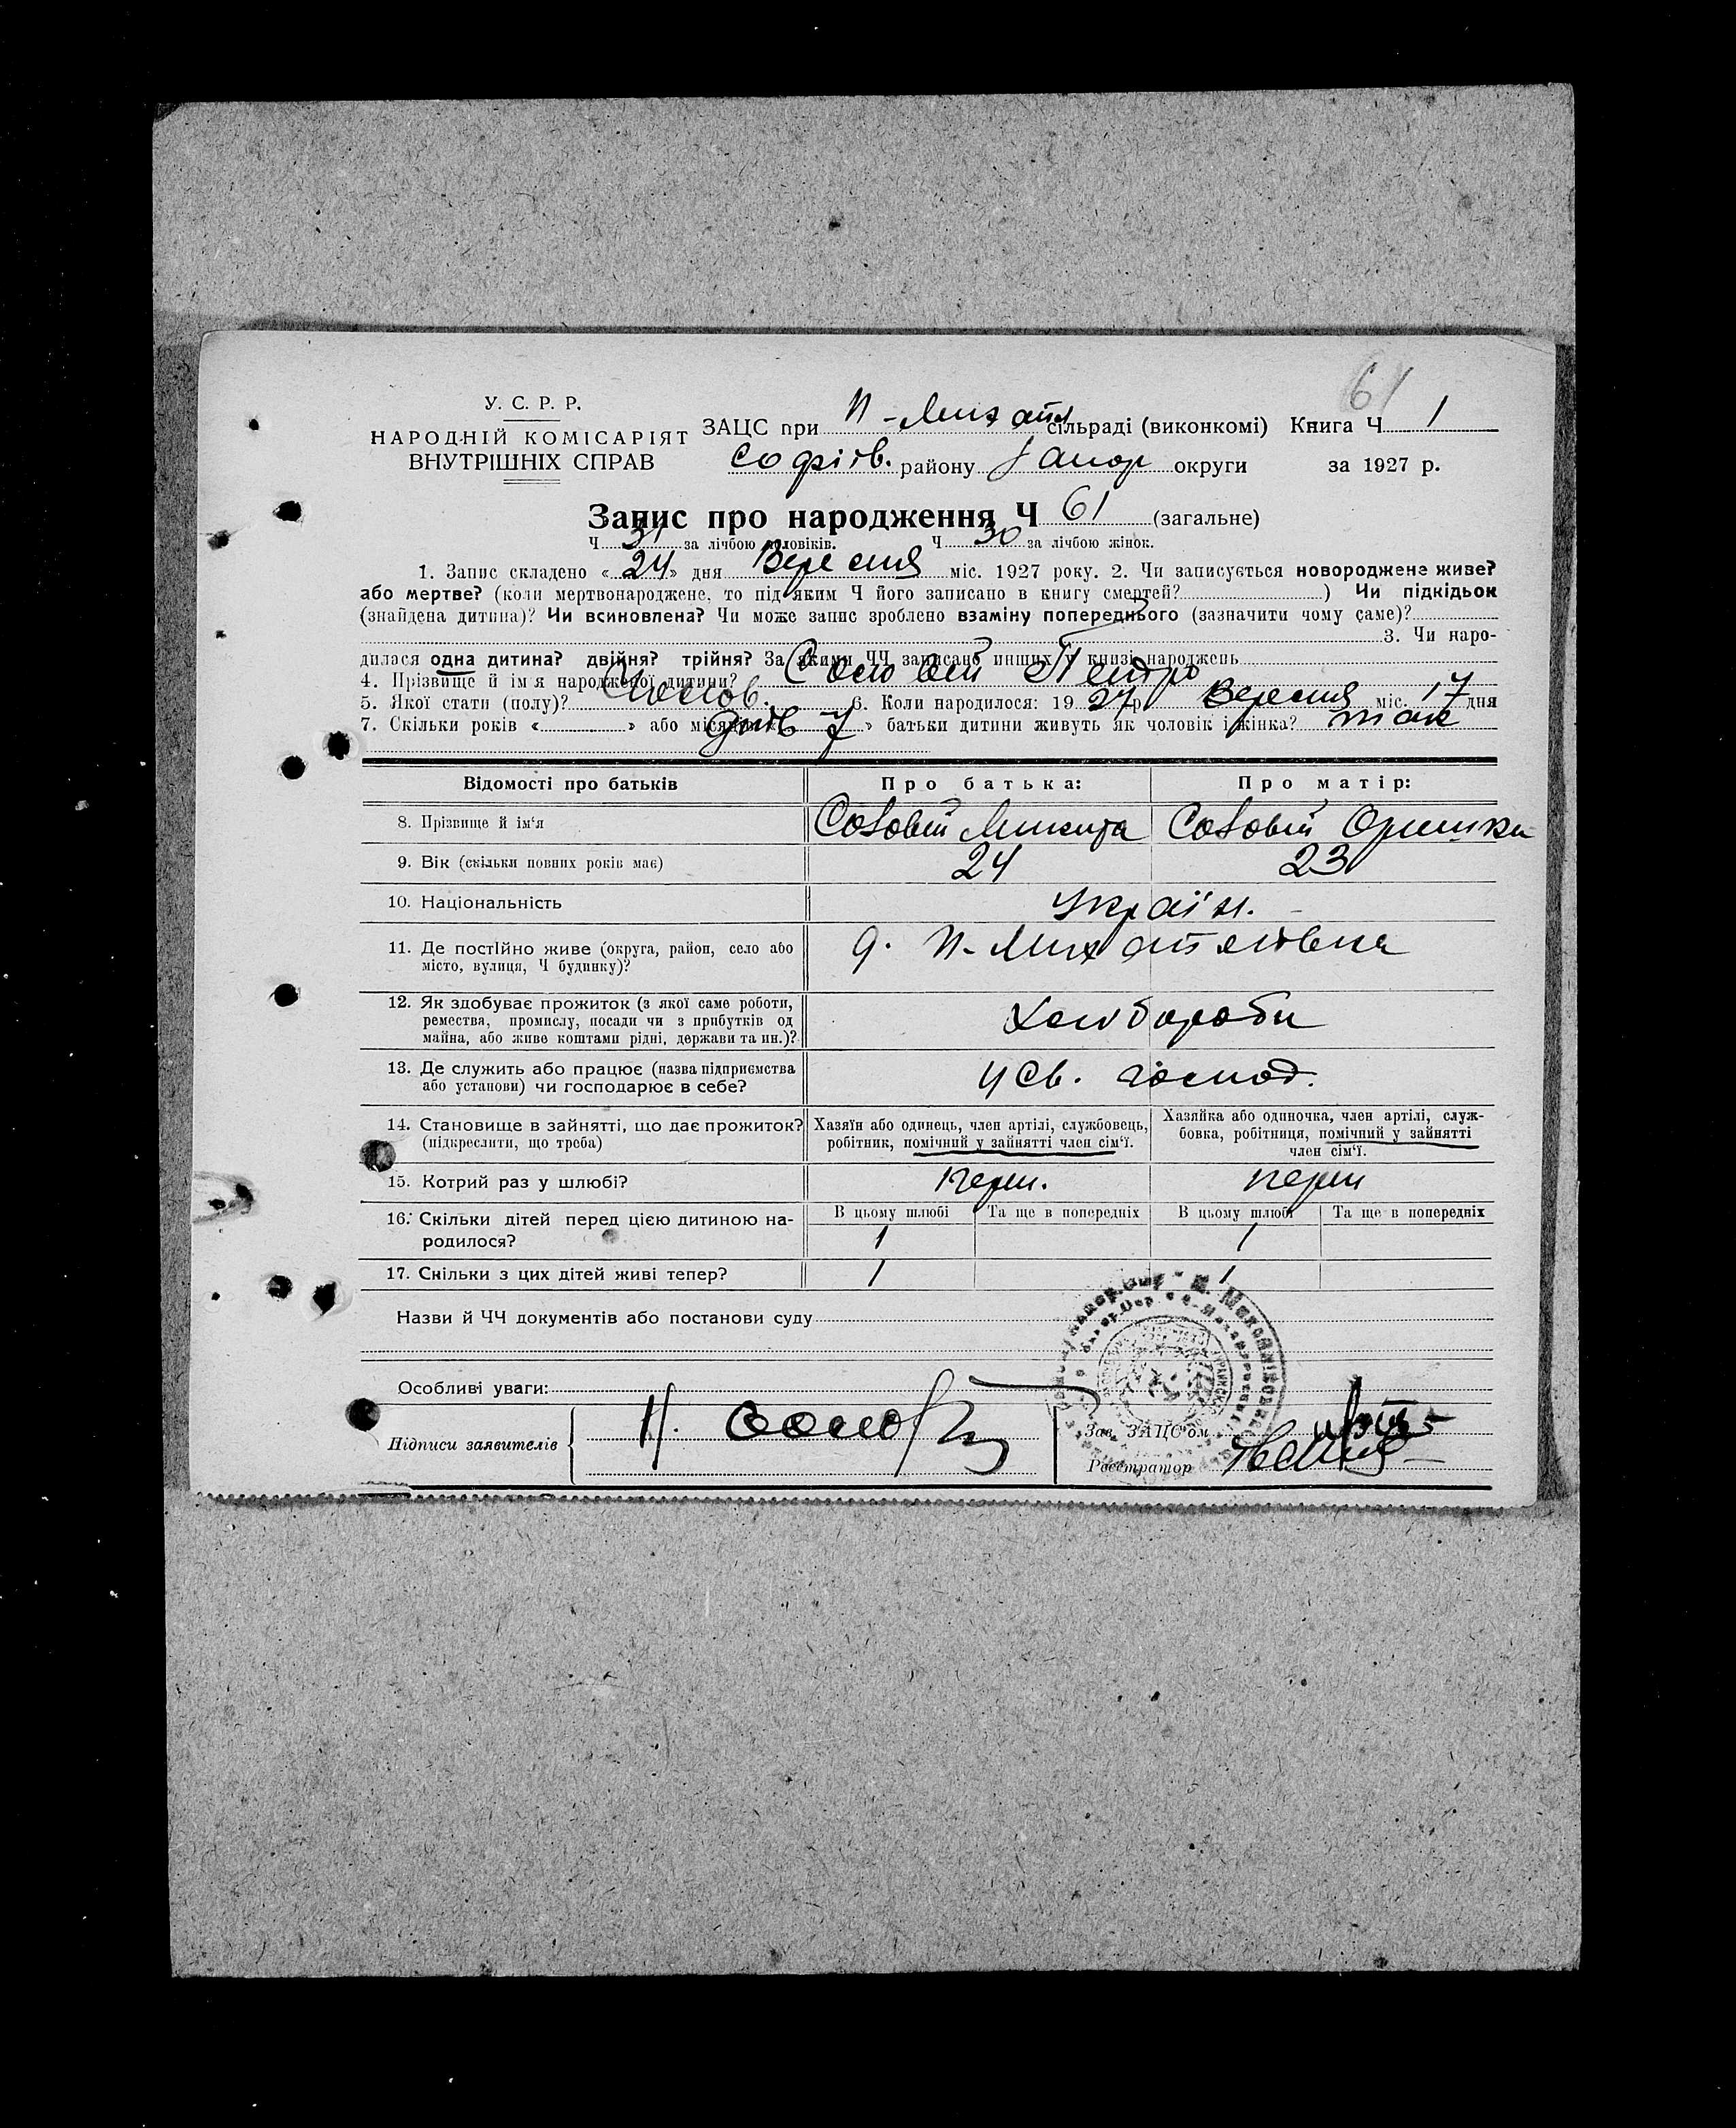 61
У. С. Р. Р.
НАРОДНІЙ КОМІСАРІЯТ
ВНУТРІШНІХ СПРАВ
ЗАЦС при Н-Михайл сільраді (виконкомі) Книга Ч 1
Софіїв. району Запор округи за 1927 р.
Запис про народження Ч 61 (загальне)
Ч 31 за лічбою чоловіків. Ч 30 за лічбою жінок.
1. Запис складено « 24 » дня Вересня міс. 1927 року. 2. Чи записується новороджене живе?
або мертве? (коли мертвонароджене, то під яким Ч його записано в книгу смертей? ) Чи підкідьок
(знайдена дитина)? Чи всиновлена? Чи може запис зроблено взаміну попереднього (зазначити чому саме)?
3. Чи наро-
дилася одна дитина? двійня? трійня? За якими ЧЧ записано инших у книзі народжень
4. Прізвище й ім'я народженої дитини? Соловей Петро
5. Якої стати (полу)? Чолов. 6. Коли народилося: 19 27 р. Вересня міс. 17 дня
7. Скільки років « » або місяців « днів 7 » батьки дитини живуть як чоловік і жінка? так
Відомості про батьків Про батька: Про матір:
8. Прізвище й ім'я Соловей Микита Соловей Оришка
9. Вік (скільки повних років має) 24 23
10. Національність Україн.
11. Де постійно живе (округа, район, село або
місто, вулиця, Ч будинку)? Н-Михайлівка
12. Як здобуває прожиток (з якої саме роботи,
ремества, промислу, посади чи з прибутків од
майна, або живе коштами рідні, держави та ин.)? Хлібороби
13. Де служить або працює (назва підприємства
або установи) чи господарює в себе? У св. господ.
14. Становище в зайнятті, що дає прожиток?
(підкреслити, що треба)
Хазяїн або одинець, член артілі, службовець,
робітник, помічний у зайнятті член сім'ї.
Хазяйка або одиночка, член артілі, служ-
бовка, робітниця, помічний у зайнятті
член сім'ї.
15. Котрий раз у шлюбі? перш. перш
16. Скільки дітей перед цією дитиною на-
родилося?
В цьому шлюбі Та ще в попередніх В цьому шлюбі Та ще в попередніх
1 1
17. Скільки з цих дітей живі тепер? 1 1
Назви й ЧЧ документів або постанови суду
Особливі уваги:
Підписи заявителів
Зав. ЗАЦС'ом
Реєстратор